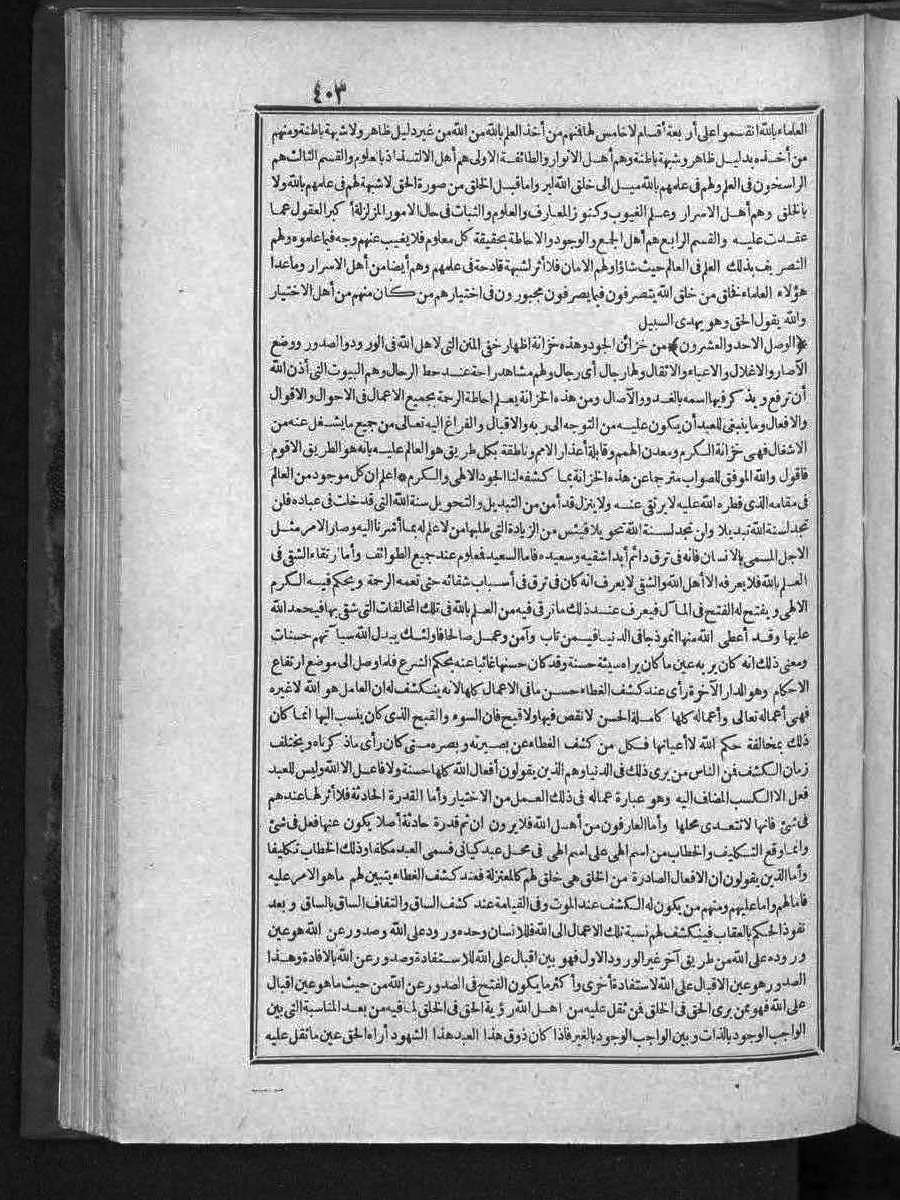 ٤٠٣
العلماء بالله انقسموا على أربعة أقسام لا خامس لها فمنهم من أخذ العلم بالله من الله من غير دليل ظاهر ولا شبهة باطنة ومنهم
من أخذه بدليل ظاهر وشبهة باطنة وهم أهل الانوار والطائفة الاولى هم أهل الالتذاذ بالعلوم والقسم الثالث هم
الراسخون فى العلم ولهم فى علمهم بالله ميل الى خلق الله لير واما قبل الخلق من صورة الحق لا شبهة لهم فى علمهم بالله ولا
بالخلق وهم أهل الاسرار وعلم الغيوب وكنوز المعارف والعلوم والثبات فى حال الامور المزلزلة أكبر العقول عما
عقدت عليه والقسم الرابع هم أهل الجمع والوجود والاحاطة بحقيقة كل معلوم فلا يغيب عنهم وجه فيما علموه ولهم
التصريف بذلك العلم فى العالم حيث شاؤا ولهم الامان فلا أثر لشبهة قادحة فى علمهم وهم أيضا من أهل الاسرار وماعدا
هؤلاء العلماء خلق من خلق الله يتصرفون فيما يصرفون مجبورون فى اختيارهم من كان منهم من أهل الاختيار
والله يقول الحق وهو يهدى السبيل
﴿الوصل الاحد والعشرون﴾ من خزائن الجود وهذه خزانة اظهار خفى المنن التى لاهل الله فى الورود والصدور ووضع
الآصار والاغلال والاعباء والاثقال ولها رجال أى رجال ولهم مشاهد راحة عند حط الرحال وهم البيوت التى أذن الله
أن ترفع ويذكر فيها اسمه بالغدو والآصال ومن هذه الخزانة يعلم احاطة الرحمة بجميع الاعمال فى الاحوال والاقوال
والافعال وما ينبغى للعبد أن يكون عليه من التوجه الى ربه والاقبال والفراغ اليه تعالى من جميع ما يشغل عنه من
الاشغال فهى خزانة الكرم ومعدن الهمم وقابلة أعذار الامم وناطقة بكل طريق هو العالم عليه بانه هو الطريق الاقوم
فاقول والله الموفق للصواب مترجما عن هذه الخزانة بما كشفه لنا الجود الالهى والكرم * اعلم ان كل موجود من العالم
فى مقامه الذى فطره الله عليه لا يرتقى عنه ولا ينزل قد أمن من التبديل والتحويل سنة الله التى قد خلت فى عباده فلن
تجد لسنة الله تبديلا ولن تجد لسنة الله تحويلا فيئس من الزيادة التى طلبها من لا علم له بما أشرنا اليه وصار الامر مثل
الاجل المسمى بالانسان فانه فى ترق دائم أبدا شقيه وسعيده فاما السعيد فعلوم عند جميع الطوائف وأما ارتقاء الشقى فى
العلم بالله فلا يعرفه الا أهل الله والشقى لا يعرف انه كان فى ترق فى أسباب شقائه حتى تعمه الرحمة ويحكم فيه الكرم
الالهى ويفتح له الفتح فى المآل فيعرف عند ذلك ما ترقى فيه من العلم بالله فى تلك المخالفات التى شقى بها فيحمد الله
عليها وقد أعطى الله منها انموذجا فى الدنيا فيمن تاب وآمن وعمل صالحا فاولئك يبدل الله سيآتهم حسنات
ومعنى ذلك انه كان يريه عين ما كان يراه سيئة حسنة وقد كان حسنها غائبا عنه بحكم الشرع فلما وصل الى موضع ارتفاع
الاحكام وهو الدار الآخرة رأى عند كشف الغطاء حسن ما فى الاعمال كلها لانه ينكشف له ان العامل هو الله لا غيره
فهى أعماله تعالى وأعماله كلها كاملة الحسن لا نقص فيها ولا قبح فان السوء والقبح الذى كان ينسب اليها انما كان
ذلك بمخالفة حكم الله لا أعيانها فكل من كشف الغطاء عن بصيرته وبصره متى كان رأى ماذكرناه ويختلف
زمان الكشف فمن الناس من يرى ذلك فى الدنيا وهم الذين يقولون أفعال الله كلها حسنة ولا فاعل الا الله وليس للعبد
فعل الا الكسب المضاف اليه وهو عبارة عماله فى ذلك العمل من الاختيار وأما القدرة الحادثة فلا أثر لها عندهم
فى شئ فانها لا تتعدى محلها وأما العارفون من أهل الله فلا يرون ان ثم قدرة حادثة أصلا يكون عنها فعل فى شئ
وانما وقع التكليف والخطاب من اسم الهى على اسم الهى فى محل عبد كيانى فسمى العبد مكلفا وذلك الخطاب تكليفا
وأما الذين يقولون ان الافعال الصادرة من الخلق هى خلق لهم كالمعتزلة فعند كشف الغطاء يتبين لهم ماهو الامر عليه
فاما لهم واما عليهم ومنهم من يكون له الكشف عند الموت وفى القيامة عند كشف الساق والتفاف الساق بالساق وبعد
نفوذ الحكم بالعقاب فينكشف لهم نسبة تلك الاعمال الى الله فللانسان وحده ورود على الله وصدور عن الله هو عين
وروده على الله من طريق آخر غير الورود الاول فهو بين اقبال على الله للاستفادة وصدور عن الله بالافادة وهذا
الصدور هو عين الاقبال على الله لاستفادة أخرى وأكثر ما يكون الفتح فى الصدور عن الله من حيث ماهو عين اقبال
على الله فهو ممن يرى الحق فى الخلق فمن ثقل عليه من اهل الله رؤية الحق فى الخلق لما فيه من بعد المناسبة التى بين
الواجب الوجود بالذات وبين الواجب الوجود بالغير فاذا كان ذوق هذا العبد هذا الشهود أراه الحق عين ما ثقل عليه